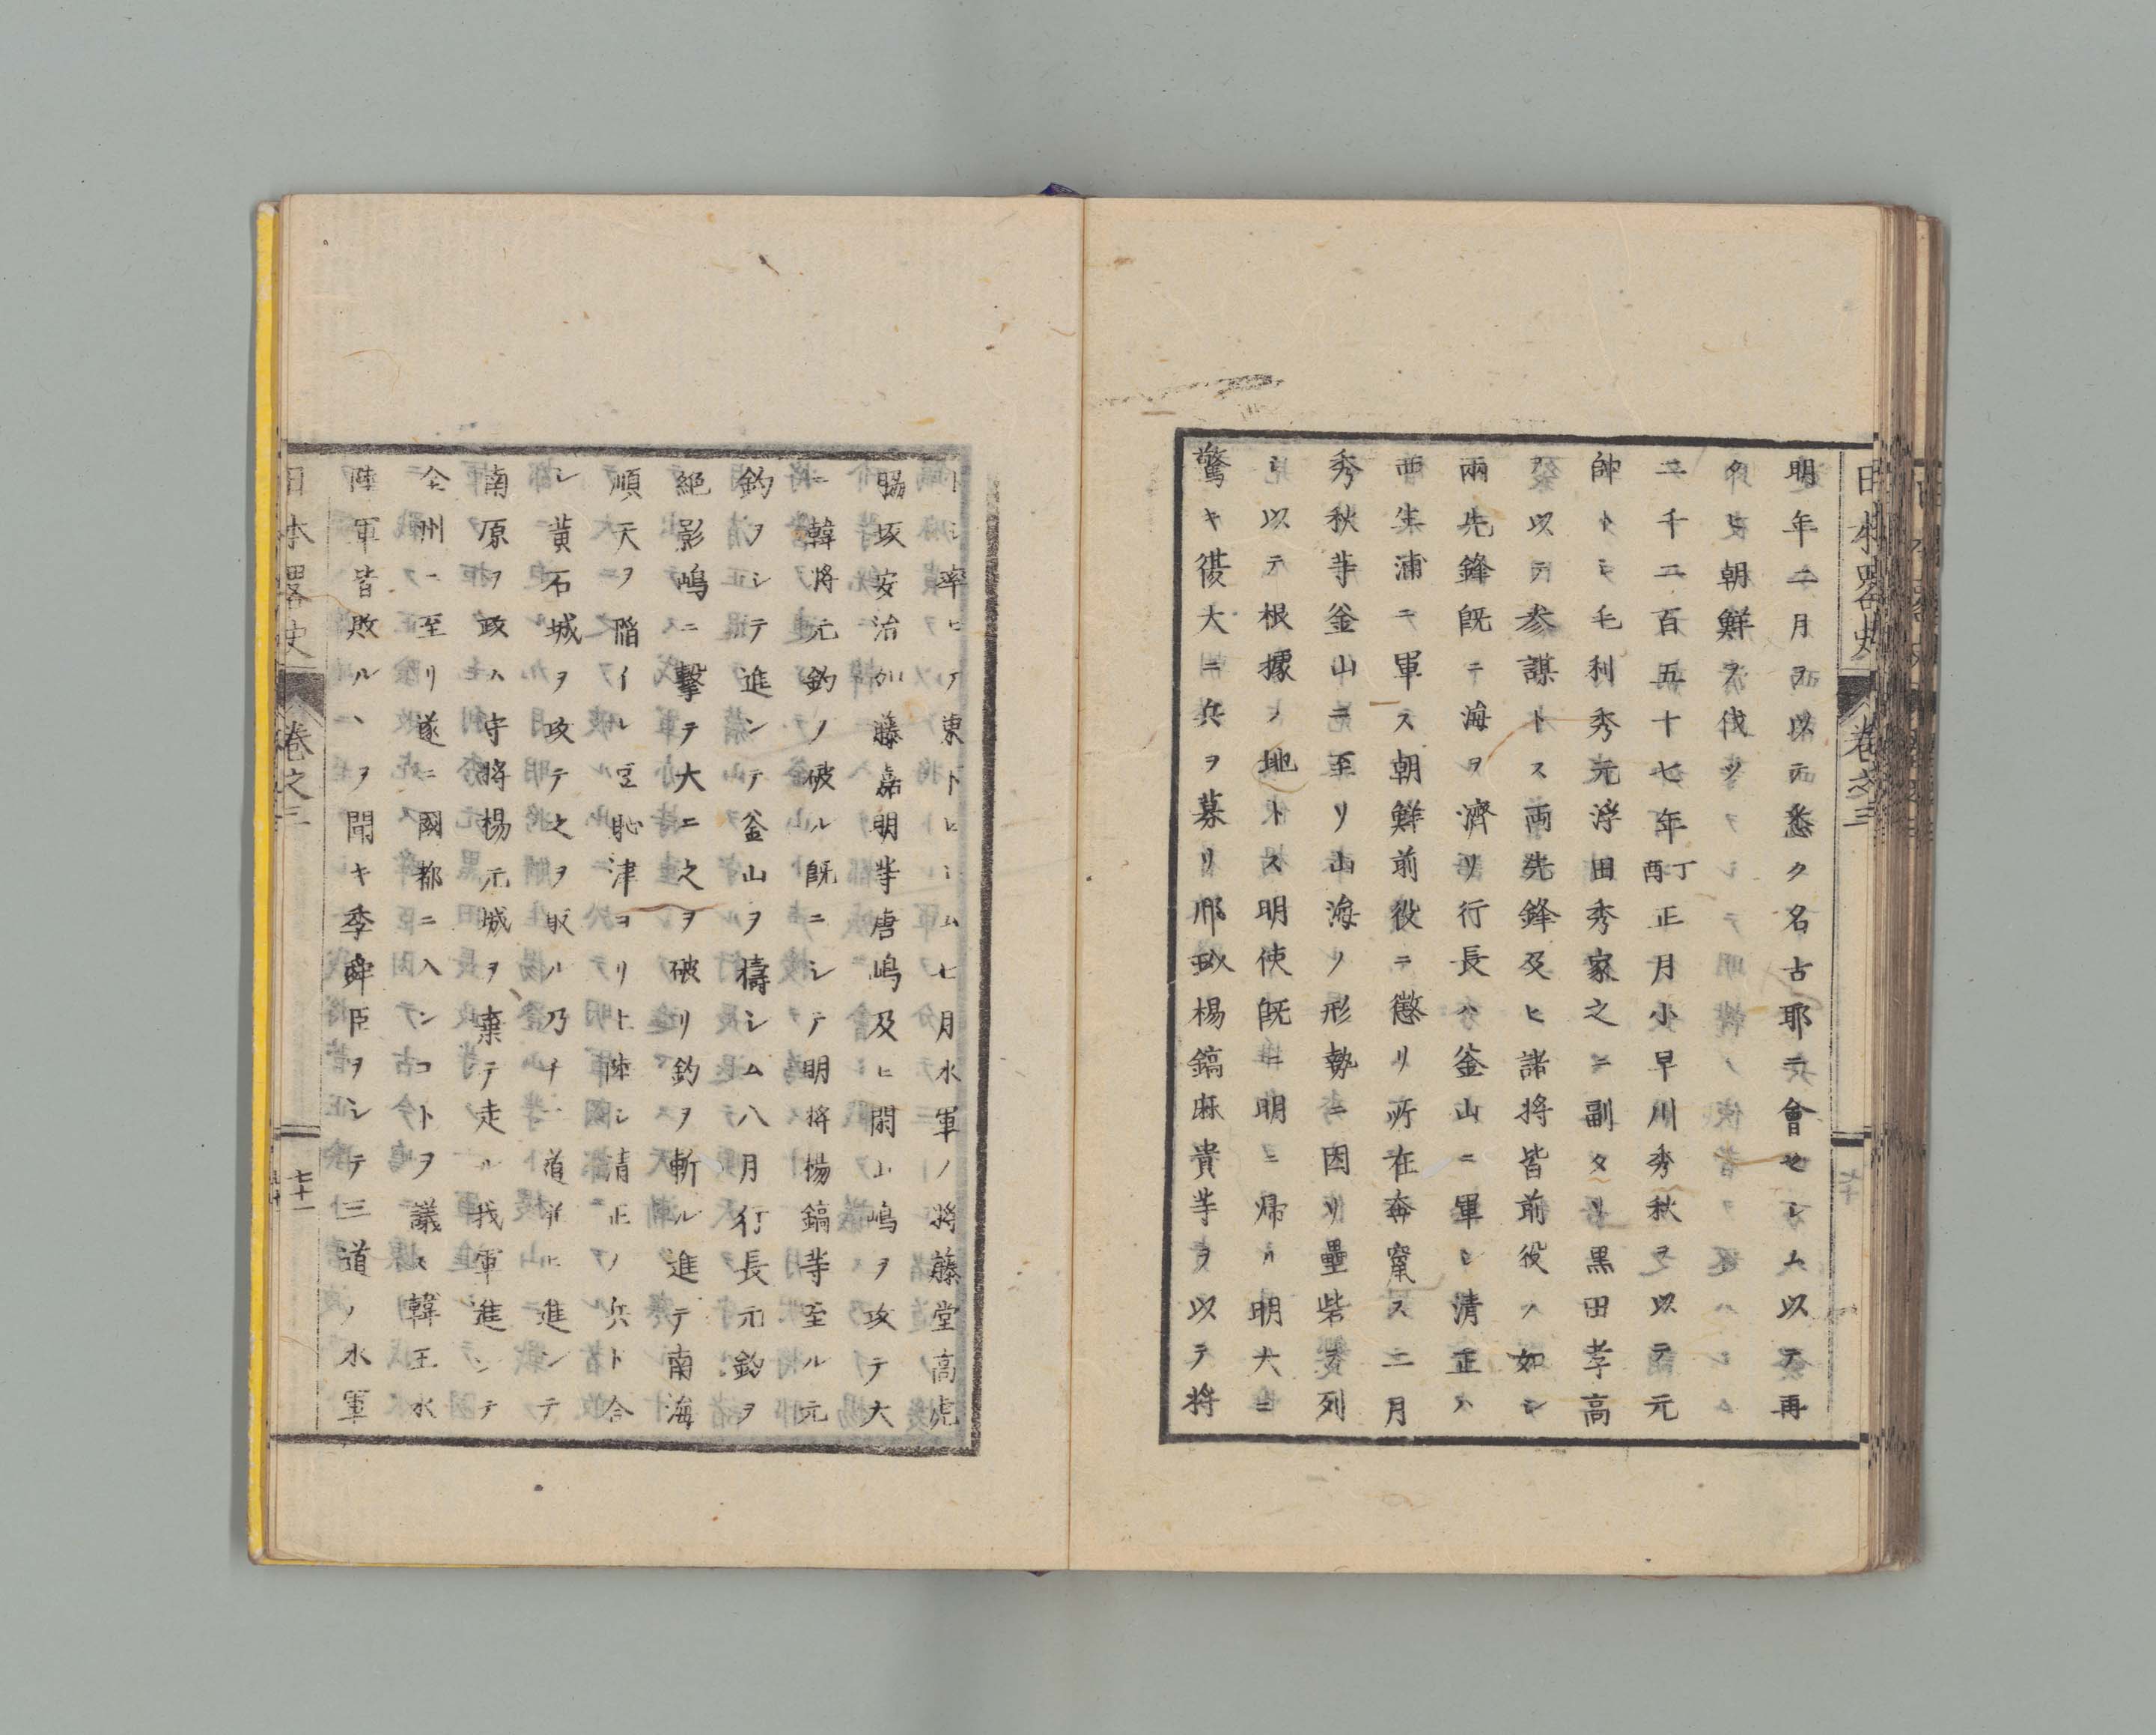 日本畧史 卷之三
明年二月ヲ以テ悉ク名古耶ニ會セシム以テ再
タヒ朝鮮ヲ伐ツ
二千二百五十七年丁酉正月小早川秀秋ヲ以テ元
帥トシ毛利秀元浮田秀家之ニ副タリ黒田孝高
ヲ以テ参謀トス両先鋒及ヒ諸将皆前役ノ如シ
兩先鋒既ニ海ヲ濟リ行長ハ釜山ニ軍シ清正ハ
西生浦ニ軍ス朝鮮前役ニ懲リ所在奔竄ス二月
秀秋等釜山ニ至リ山海ノ形勢ニ因リ壘砦ヲ列
シ以テ根據ノ地トス明使既ニ明ニ帰リ明大ニ
驚キ復大ニ兵ヲ募リ邢玠楊鎬麻貴等ヲ以テ将
トシ率ヒテ東トヒシム七月水軍ノ将藤堂高虎
脇坂安治加藤嘉明等唐嶋及ヒ閑山嶋ヲ攻テ大
ニ韓将元釣ノ破ル既ニシテ明将楊鎬等至ル元
釣ヲシテ進ンテ釜山ヲ擣シム八月行長元釣ヲ
絶影嶋ニ撃テ大ニ之ヲ破リ釣ヲ斬ル進テ南海
順天ヲ陥イル豆恥津ヨリ上陸シ清正ノ兵ト合
シ黄石城ヲ攻テ之ヲ取ル乃チ道ヲ進ンテ
南原ヲ攻ム守将楊元城ヲ棄テ走ル我軍進ンテ
全州ニ至リ遂ニ國都ニ入ンコトヲ議ス韓王水
陸軍皆敗ルヽヲ聞キ李舜臣ヲシテ三道ノ水軍
日本畧史 卷之三 七十一